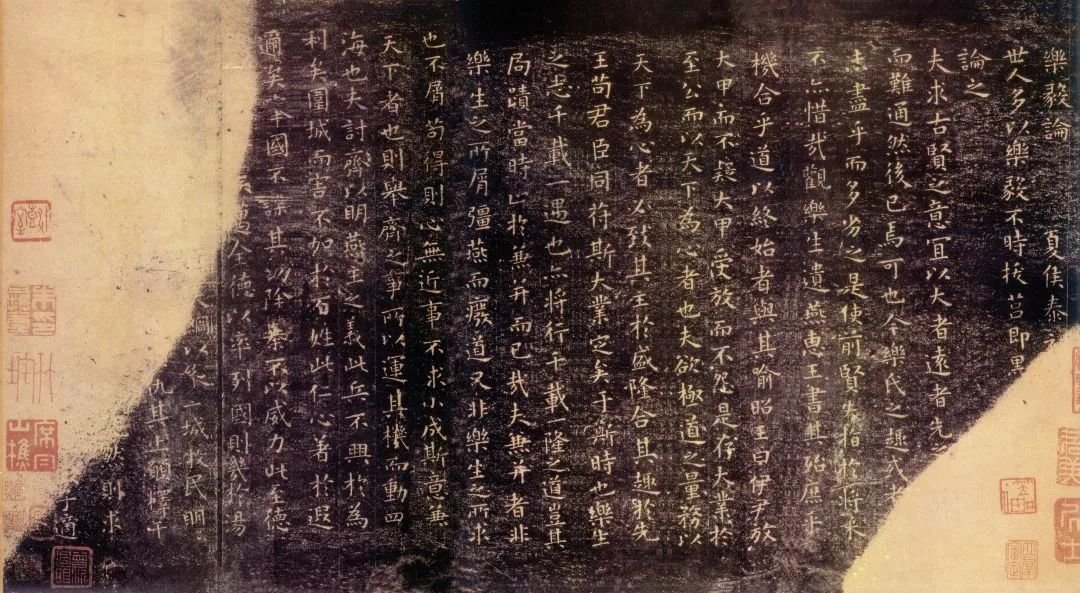 樂毅論 夏侯泰
世人多以樂毅不時拔莒即墨
論之
夫求古賢之意宜以大者遠者先
而難通然後已焉可也今樂氏之趣或者
未盡乎而多劣之是使前賢失指於將來
不亦惜哉觀樂生遺燕惠王書其殆庶乎
機合乎道以終始者與其喻昭王曰伊尹放
大甲而不疑大甲受放而不怨是存大業於
至公而以天下為心者也夫欲極道之量務以
天下為心者必致其主於盛隆合其趣於先
王苟君臣同符斯大業定矣于斯時也樂生
之志千載一遇也亦將行千載一隆之道豈其
局蹟當時止於兼并而已哉夫兼并者非
樂生之所屑彊燕而廢道又非樂生之所求
也不屑苟得則心無近事不求小成斯意兼
天下者也則舉齊之事所以運其機而動四
海也夫討齊以明燕主之義此兵不興於為
利矣圍城而害不加於百姓此仁心著於遐
邇矣舉國不謀其功除暴不以威力此至德
全德以率列國則幾於湯
以縱二城收民明
其上願釋干
則求
道